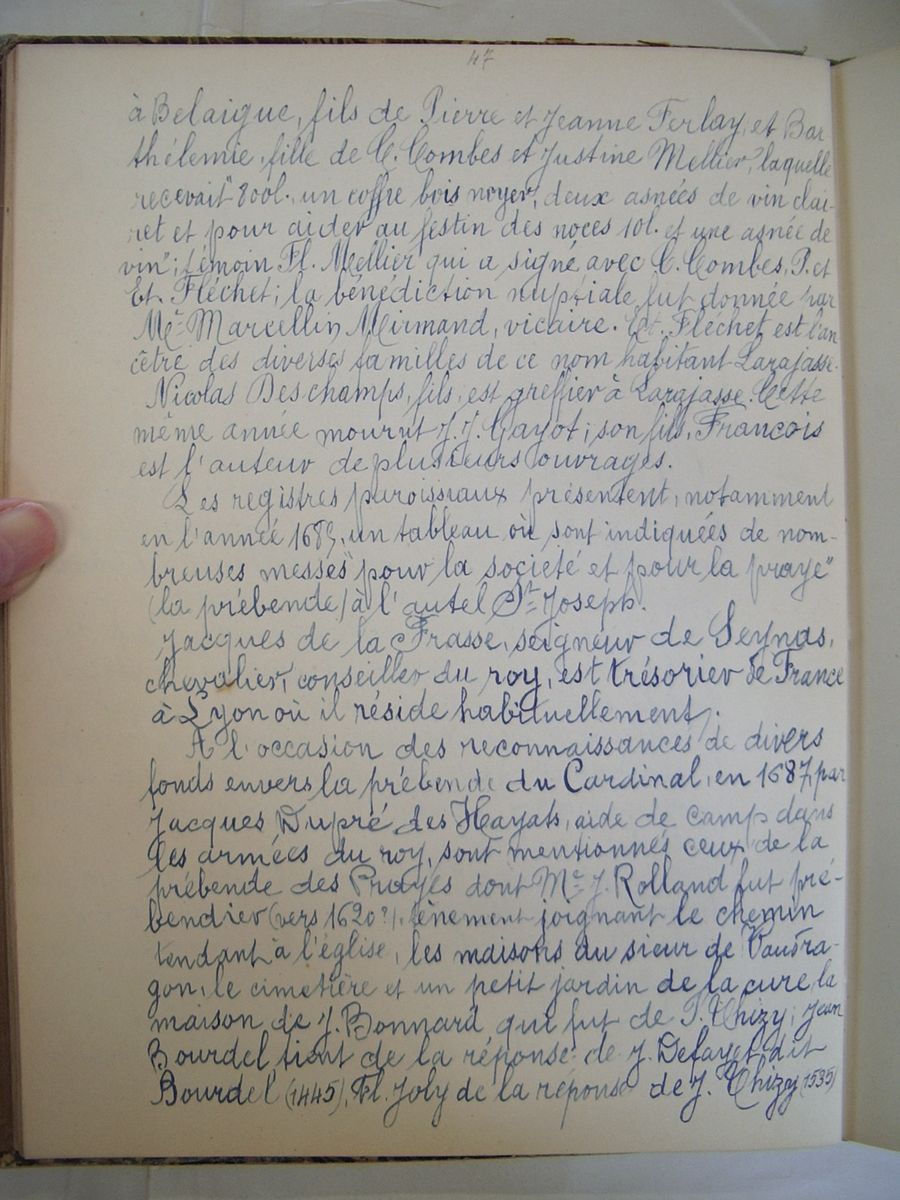 47
à Belaigue, fils de Pierre et Jeanne Ferlay, et Bar-
thélemie, fille de C. Combes et Justine Mellier, laquelle
recevait "800l. un coffre bois noyer, deux asnées de vin clai-
ret et pour aider au festin des noces 10l. et une asnée de
vin"; témoin Fl. Mellier qui a signé avec C. Combes, P. et
Et. Fléchet; la bénédiction nuptiale fut donnée par
Mre Marcellin Mirmand, vicaire. Et. Fléchet est l'an
cêtre des diverses familles de ce nom habitant Larajasse.
Nicolas Deschamps, fils, est greffier à Larajasse. Cette
même année mourut J. J. Gayot; son fils, François
est l'auteur de plusieurs ouvrages.
Les registres paroissiaux présentent, notamment
en l'année 1689, un tableau où sont indiquées de nom-
breuses messes "pour la société et pour la praye"
(la prébende) à l'autel St Joseph.
Jacques de la Frasse, seigneur de Seynas,
chevalier, conseiller du roy, est trésorier de France
à Lyon où il réside habituellement.
A l'occasion des reconnaissances de divers
fonds envers la prébende du Cardinal, en 1687, par
Jacques Dupré des Hayats, aide de camp dans
les armées du roy, sont mentionnés ceux de la
prébende des Prayes dont Mre J. Rolland fut pré-
bendier (vers 1620?), tènement joignant le chemin
tendant à l'église, les maisons du sieur de Vaudra-
gon, le cimetière et un petit jardin de la cure, la
maison de J. Bonnard qui fut de P. Chizy; Jean
Bourdel tient de la réponse de J. Defayet dit
Bourdel (1445), Fl. Joly de la réponse de J. Chizy (1535)